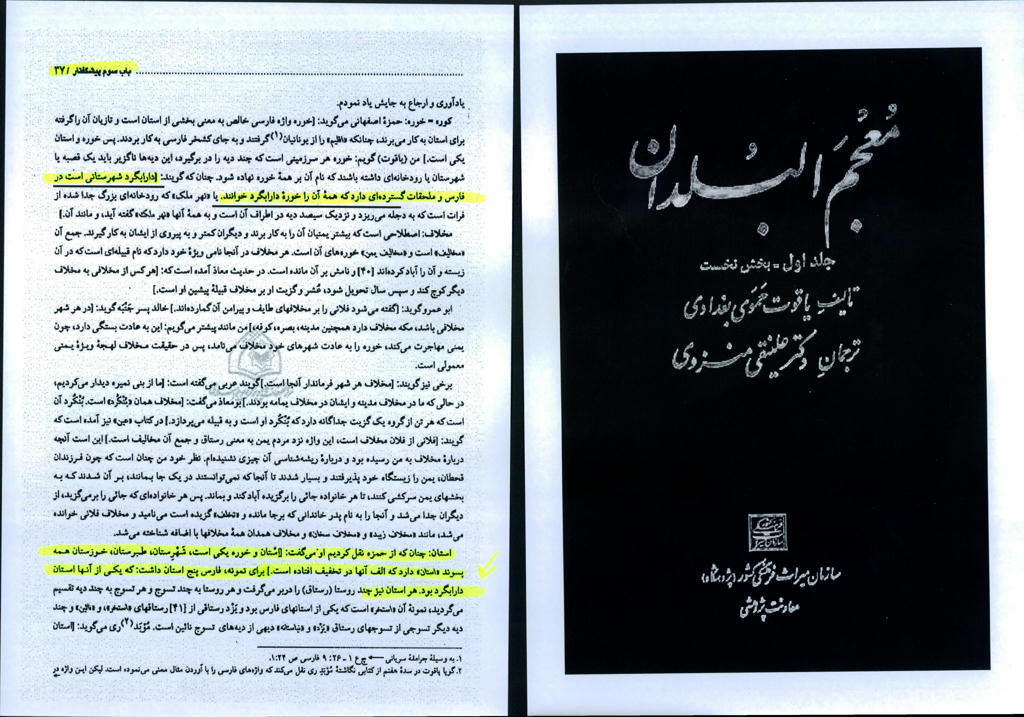 باب سوم پیشگفتار / ۳۷
یادآوری و ارجاع به جایش یاد نمودم.
کوره = خوره: حمزهٔ اصفهانی می‌گوید: [خوره واژه فارسی خالص به معنی بخشی از استان است و تازیان آن را گرفته
برای استان به کار می‌برند، چنانکه «اقلیم» را از یونانیان(۱) گرفتند و به جای کشخر فارسی به کار بردند. پس خوره و استان
یکی است.] من (یاقوت) گویم: خوره هر سرزمینی است که چند دیه را در برگیرد، این دیه‌ها ناگزیر باید یک قصبه یا
شهرستان یا رودخانه‌ای داشته باشند که نام آن بر همهٔ خوره نهاده شود. چنان که گویند: [دارابگرد شهرستانی است در
فارس و ملحقات گسترده‌ای دارد که همهٔ آن را خورهٔ دارابگرد خوانند. یا «نهر ملک» که رودخانه‌ای بزرگ جدا شده از
فرات است که به دجله می‌ریزد و نزدیک سیصد دیه در اطراف آن است و به همهٔ آنها «نهر ملک» گفته آید، و مانند آن.]
مخلاف: اصطلاحی است که بیشتر یمنیان آن را به کار برند و دیگران کمتر و به پیروی از ایشان به کار گیرند. جمع آن
«مخالیف» است و «مخالیف یمن» خوره‌های آن است. هر مخلاف در آنجا نامی ویژهٔ خود دارد که نام قبیله‌ای است که در آن
زیسته و آن را آباد کرده‌اند [۴۰] و نامش بر آن مانده است. در حدیث معاذ آمده است که: [هر کس از مخلافی به مخلاف
دیگر کوچ کند و سپس سال تحویل شود، عُشر و گزیت او بر مخلاف قبیلهٔ پیشین او است.]
ابو عمرو گوید: [گفته می‌شود فلانی را بر مخلافهای طایف و پیرامن آن گمارده‌اند.] خالد پسر جَنْبَه گوید: [در هر شهر
مخلافی باشد، مکه مخلاف دارد همچنین مدینه، بصره، کوفه.] من مانند پیشتر می‌گویم: این به عادت بستگی دارد، چون
یمنی مهاجرت می‌کند، خوره را به عادت شهرهای خود مخلاف می‌نامد، پس در حقیقت مخلاف لهجهٔ ویژهٔ یمنی
معمولی است.
برخی نیز گویند: [مخلاف هر شهر فرماندار آنجا است.] گویند عربی می‌گفته است: [ما از بنی نمیره دیدار می‌کردیم،
در حالی که ما در مخلاف مدینه و ایشان در مخلاف یمامه بودند.] بومعاذ می‌گفت: [مخلاف همان «بُنْکَرْد» است. بُنْکَرْد آن
است که هر تن از گروه یک گزیت جداگانه دارد که بُنْکَرد او است و به قبیله می‌پردازد.] در کتاب «عین» نیز آمده است که
گویند: [فلانی از فلان مخلاف است، این واژه نزد مردم یمن به معنی رستاق و جمع آن مخالیف است.] این است آنچه
دربارهٔ مخلاف به من رسیده بود و دربارهٔ ریشه‌شناسی آن چیزی نشنیده‌ام. نظر خود من چنان است که چون فرزندان
قحطان، یمن را زیستگاه خود پذیرفتند و بسیار شدند تا آنجا که نمی‌توانستند در یک جا بمانند، بر آن شدند که به
بخشهای یمن سرکشی کنند، تا هر خانواده جائی را برگزیده آباد کند و بماند. پس هر خانواده‌ای که جائی را برمی‌گزید، از
دیگران جدا می‌شد و آنجا را به نام پدر خاندانی که برجا مانده و «تخلف» گزیده است می‌نامید و مخلاف فلانی خوانده
می‌شد، مانند «مخلاف زبید» و «مخلاف سنحان» و مخلاف همدان همهٔ مخلافها با اضافه شناخته می‌شد.
استان: چنان که از حمزه نقل کردیم او می‌گفت: [اُستان و خوره یکی است، شَهْرِستان، طبرستان، خوزستان همه
پسوند «استان» دارد که الف آنها در تخفیف افتاده است.] برای نمونه، فارس پنج استان داشت: که یکی از آنها استان
دارابگرد بود. هر استان نیز چند روستا (رستاق) را دربر می‌گرفت و هر روستا به چند تسوج و هر تسوج به چند دیه تقسیم
می‌گردید، نمونهٔ آن «استخر» است که یکی از استانهای فارس بود و یَزْد رستاقی از [۴۱] رستاقهای «استخر»، و «نائین» و چند
دیه دیگر تسوجی از تسوجهای رستاق «یَزْد» و «نیاستانه» دیهی از دیه‌های تسوج نائین است. مُؤبَد(۲) ری می‌گوید: [استان
۱. به وسیلهٔ جرامقهٔ سریانی ← چ ع ۱ - ۲۶: ۹ فارسی ص ۱:۲۴.
۲. گویا یاقوت در سدهٔ هفتم از کتابی نگاشتهٔ مُؤبَدِ ری نقل می‌کند که واژه‌های فارسی را با آوردن مثال معنی می‌نموده است. لیکن این واژه در
معجم البلدان
جلد اول - بخش نخست
تالیف یاقوت حموی بغدادی
ترجمان دکتر علینقی منزوی
سازمان میراث فرهنگی کشور (پژوهشگاه)
معاونت پژوهشی